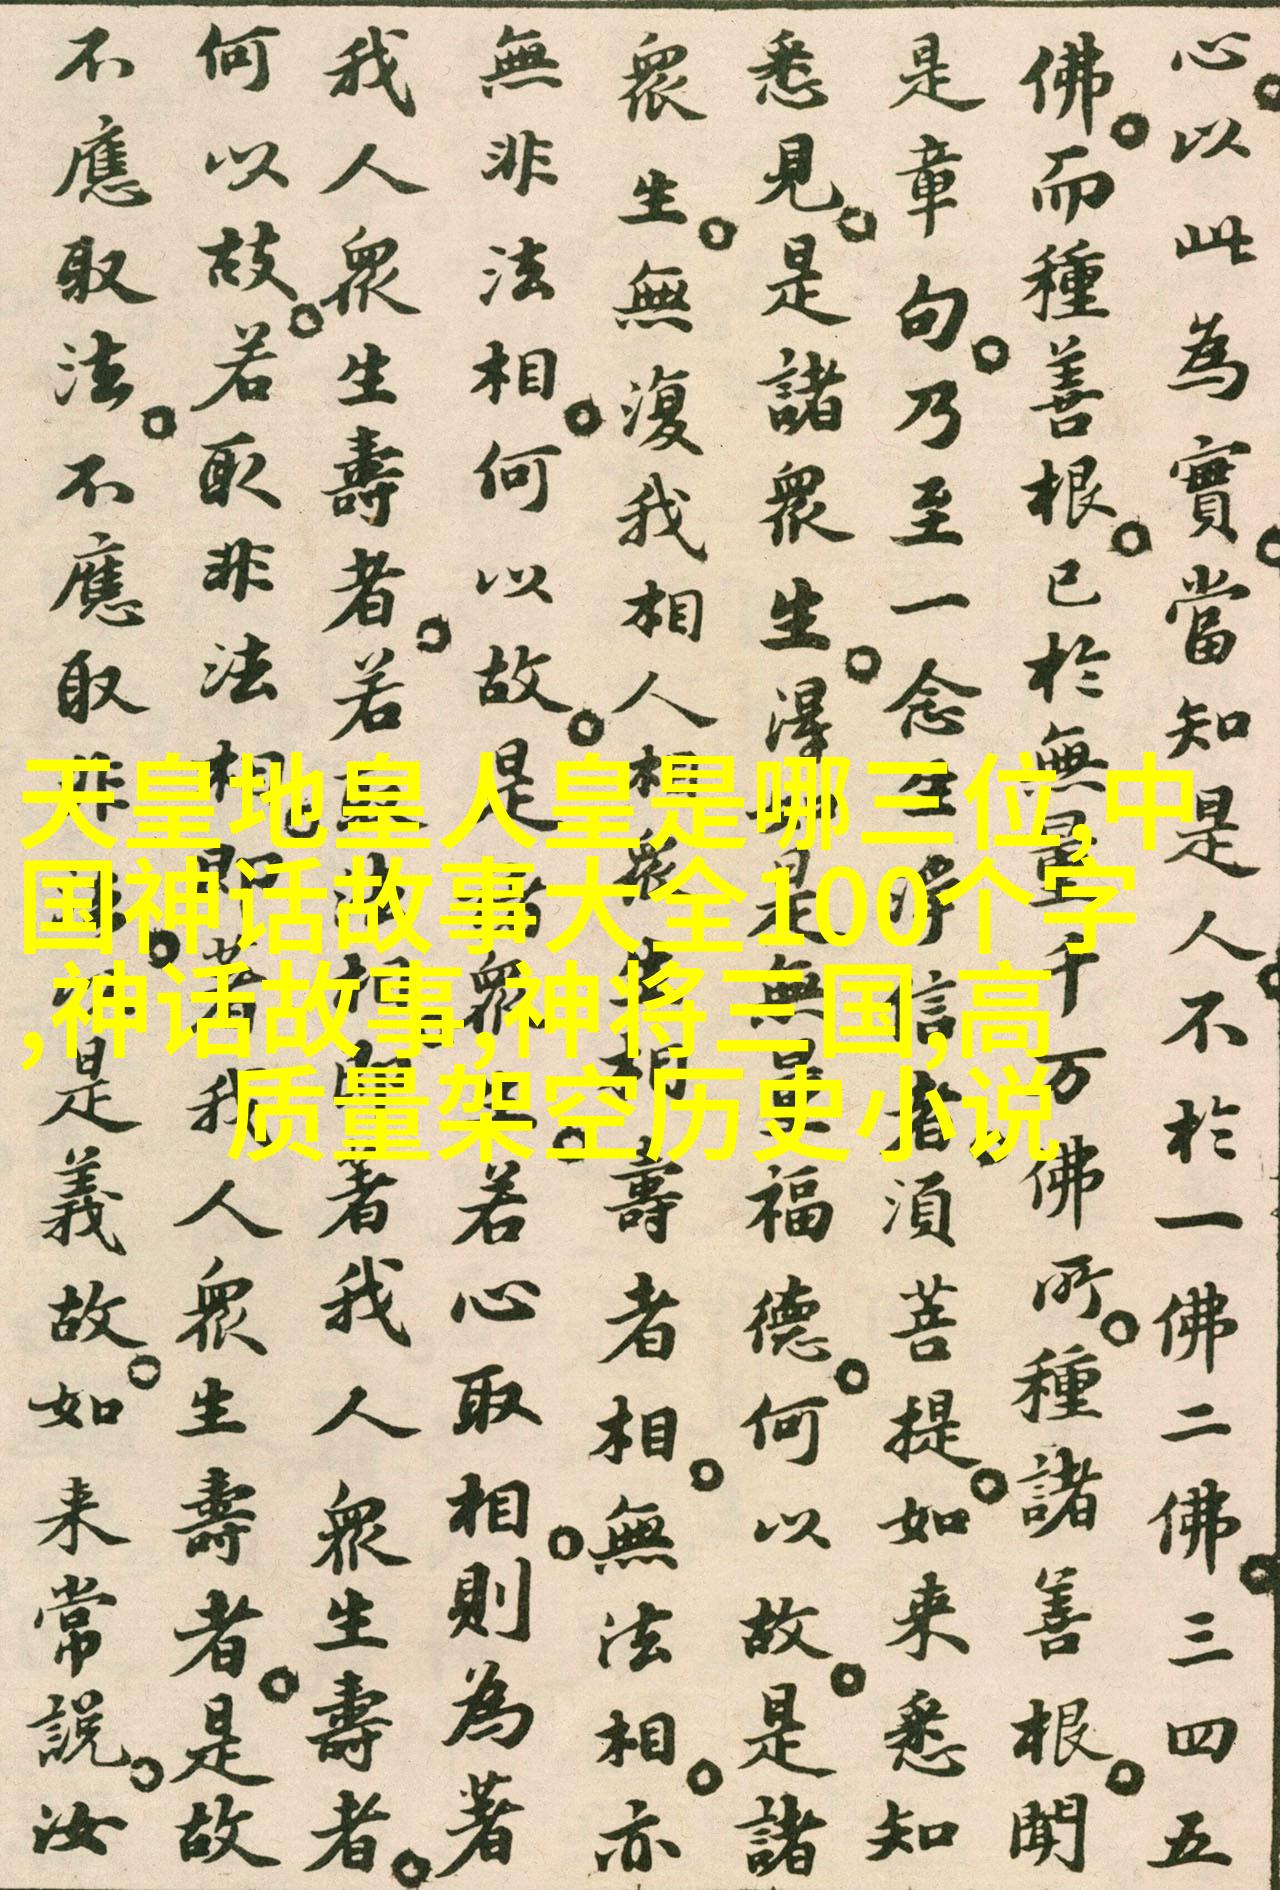 心。以此為實。當知是人。不於一佛二佛。三四五
佛。而種善根。已於無量千万佛所。種諸善根。聞
是章句。乃至一念生淨信者。須菩提。如来悉知
悉見。是諸眾生。得如是無量福德。何以故。是諸
眾生。無復我相人相眾生相壽者相。無法相。亦
無非法相。何以故。是諸眾生。若心取相。則為著
我人眾生壽者。若取法相。即著我人眾生壽者。
何以故。若取非法相。即著我人眾生壽者。是故
不應取法。不應取非法。以是義故。如来常說。汝
天皇地皇人皇是哪三位,中
国神话故事大全100个字
,神话故事,神将三国,高
质量架空历史小说